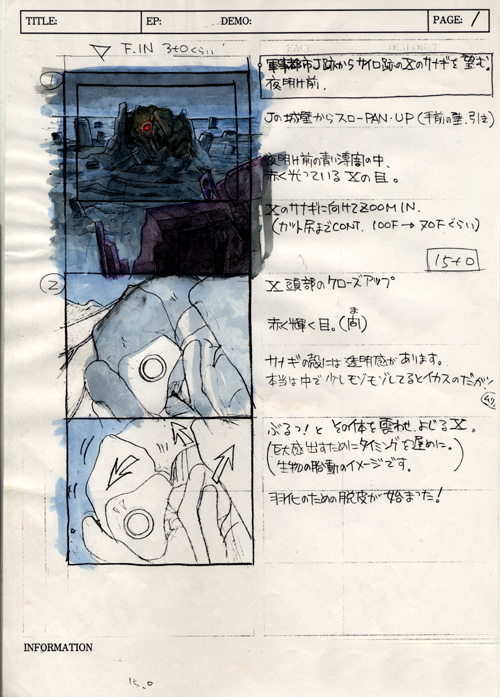 TITLE: EP: DEMO: PAGE: 1
F.IN 3+0くらい
FACE DIALOGUE
①
軍事都市J跡からサイロ跡のXのサナギを望む。
夜明け前.
Jの城壁からスローPAN・UP (手前の壁、引き)
夜明け前の青い薄闇の中、
赤く光っているXの目。
Xのサナギに向けてZOOM IN.
(カット尻までCONT. 100F→70Fぐらい)
15+0
②
X頭部のクローズアップ
赤く輝く目。
サナギの殻には透明感があります。
本当は中で少しモゾモゾしてるとイカスのだが
ぶるっ!と その体を震わせ、よじるX。
(巨大感出すためにタイミングを遅めに。
生物の胎動のイメージです。)
羽化のための脱皮が始まった!
INFORMATION